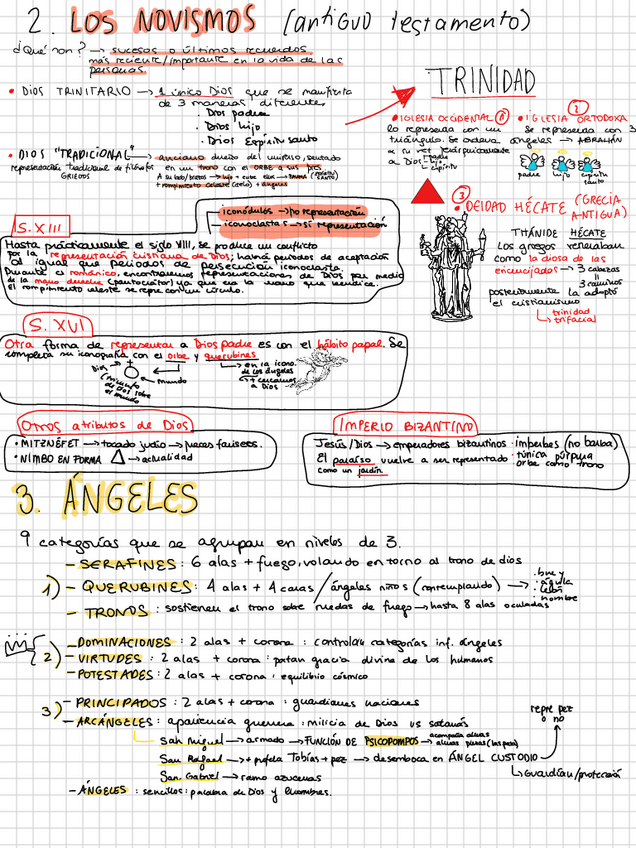 2. LOS NOVISMOS (antiguo testamento)
¿Qué son? → sucesos o últimos recuerdos
más reciente/importante en la vida de las
personas
• DIOS TRINITARIO → 1 único Dios que se manifiesta
de 3 maneras diferentes
· Dios padre
· Dios hijo
· Dios Espíritu santo
• DIOS "TRADICIONAL" → anciano dueño del universo, sentado
representación tradicional de filósofos
GRIEGOS
en un trono con el ORBE a sus pies
+ rompimiento celeste (cielo) + ángeles
TRINIDAD
• IGLESIA OCCIDENTAL
lo representa con un
triángulo. Se ordena
a su vez jerárquicamente
a Dios
padre
hijo
espíritu
2
• IGLESIA ORTODOXA
Se representa con 3
ángeles → ABRAHÁN
padre hijo espíritu
santo
3
• DEIDAD HÉCATE (GRECIA
ANTIGUA)
THÁNIDE HÉCATE
Los griegos veneraban
como la diosa de las
encrucijadas → 3 cabezas
=
3 caminos
posteriormente la adoptó
el cristianismo
↳ trinidad
trifacial
iconódulos → no representación
iconoclasta → sí representación
S. XIII
Hasta prácticamente el siglo VIII, se produce un conflicto
por la representación cristiana de Dios; habrá periodos de aceptación
al igual que periodos de persecución iconoclasta.
Durante el románico, encontramos representaciones de Dios por medio
de la mano derecha (pantocrátor) ya que es la mano que bendice.
El rompimiento celeste se representa con un círculo.
S. XVI
Otra forma de representar a Dios padre es con el hábito papal. Se
completa su iconografía con el orbe y querubines
Dios
mundo
triunfo
de Dios sobre
el mundo
↳ en la icono.
de los ángeles
+ cercanos
a Dios
Otros atributos de Dios
• MITZNÉFET → tocado judío → jueces fariseos.
• NIMBO EN FORMA △ → actualidad
IMPERIO BIZANTINO
Jesús/Dios → emperadores bizantinos · imberbes (no barba)
El paraíso vuelve a ser representado · túnica púrpura
como un jardín · orbe como trono
3. ÁNGELES
9 categorías que se agrupan en niveles de 3.
1)
- SERAFINES: 6 alas + fuego, volando en torno al trono de dios
- QUERUBINES: 4 alas + 4 caras / ángeles niños (contemplando) →
· buey
· águila
· león
· hombre
- TRONOS: sostienen el trono sobre ruedas de fuego → hasta 8 alas oculadas
2)
- DOMINACIONES: 2 alas + corona: controlan categorías inf. ángeles
- VIRTUDES: 2 alas + corona: portan gracia divina de los humanos
- POTESTADES: 2 alas + corona: equilibrio cósmico
3)
- PRINCIPADOS: 2 alas + corona: guardianes naciones
- ARCÁNGELES: apariencia guerrera: milicia de Dios vs satanás
San Miguel → armado → FUNCIÓN DE PSICOPOMPOS → acompaña almas
San Rafael → + profeta Tobías + pez → desemboca en ÁNGEL CUSTODIO
repre pez
o no
↳ Guardián/protección
San Gabriel → ramo azucenas
- ÁNGELES: sencillos: palabra de Dios y hombres.